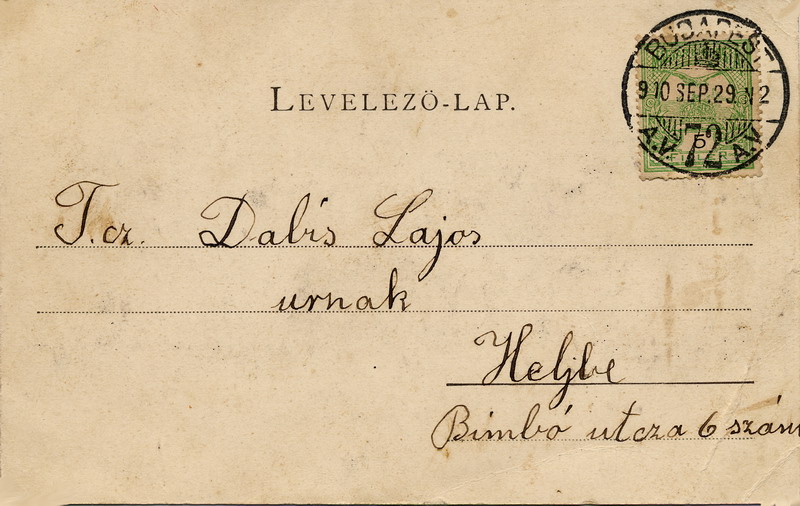 BUDAPEST
910 SEP. 29. N2
A.V. 72 A.V.
5
LEVELEZŐ-LAP.
T. cz. Dabis Lajos
urnak
Heljbe
Bimbó utcza 6 szám